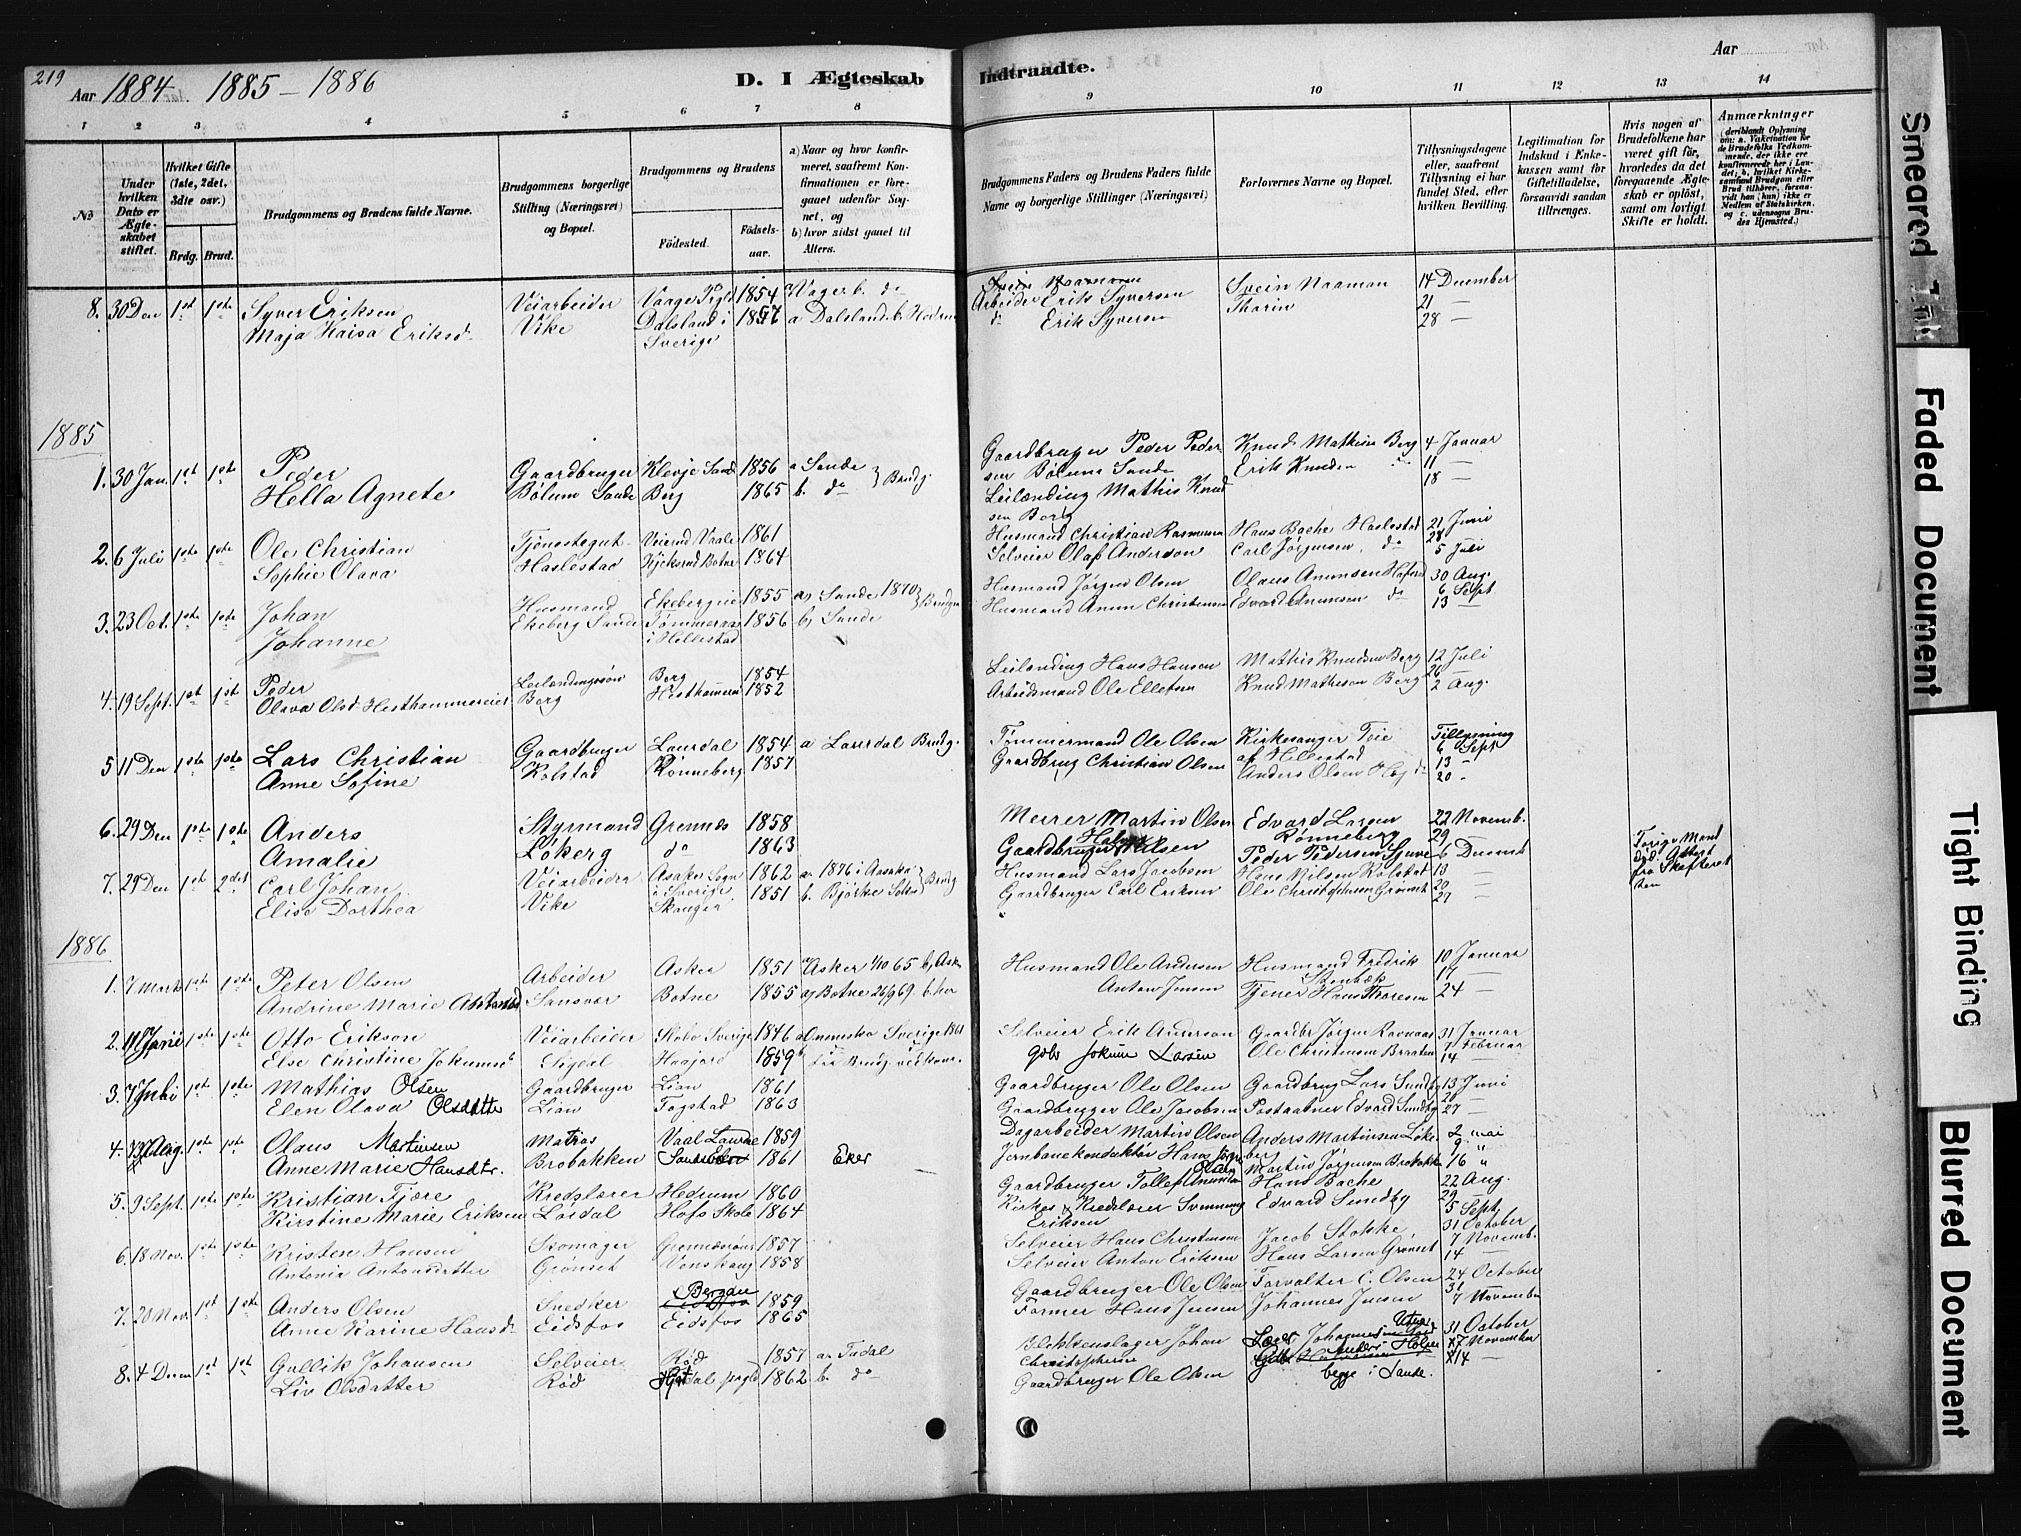 219
Aar 1884. 1885 - 1886
D. I Ægteskab
Indtraadte.
Aar
1 2 3 4 5 6 7 8
9 10 11 12 13 14
№
Under hvilken Dato er Ægteskabet stiftet.
Hvilket Gifte (1ste, 2det, 3die osv.)
Brdg. Brud.
Brudgommens og Brudens fulde Navne.
Brudgommens borgerlige Stilling (Næringsvei) og Bopæl.
Brudgommens og Brudens
Fødested.
Fødselsaar.
a) Naar og hvor konfirmeret, saafremt Konfirmationen er foregaaet udenfor Sognet, og
b) hvor sidst gaaet til Alters.
Brudgommens Faders og Brudens Faders fulde Navne og borgerlige Stillinger (Næringsvei)
Forlovernes Navne og Bopæl.
Tillysningsdagene eller, saafremt Tillysning ei har fundet Sted, efter hvilken Bevilling.
Legitimation for Indskud i Enkekassen samt for Giftetilladelse, forsaavidt saadan tiltrænges.
Hvis nogen af Brudefolkene har været gift før, hvorledes da det foregaaende Ægteskab er opløst, samt om lovligt Skifte er holdt.
Anmærkninger
(deriblandt Oplysning om: a. Vakcination for de Brudefolks Vedkommende, der ikke ere konfirmerede her i Landet; b. hvilket Kirkesamfund Brudgom eller Brud tilhører, forsaavidt han (hun) ikke er Medlem af Statskirken, og c. udensogns Brudes Hjemsted.)
8. 30 Dec 1st 1ste Syver Eriksen Veiarbeider 1854 Arbeider Erik Syversen Svein Naaman 14 December
Maja Kaisa Eriksd. Vike Dalsland i Sverige 1857 a Dalsland b. Erik Syversen Thorin 21 —
28 —
1885
1. 30 Jan. 1st 1ste Peder Gaardbruger Klevje Sande 1856 a Sande Brudg. Gaardbruger Peder Pedersen Bolum Sande Knud Mathisen Berg 4 Januar
Hella Agnete Bølum Sande Berg 1865 b. do Leilænding Mathis Knudsen Berg Erik Knudsen 11 —
18 —
2. 6 Juli 1ste 1ste Ole Christian Tjenestegut Vaale 1861 Husmand Christian Rasmussen Hans Bache Haslestad 21 Juni
Sophie Olava Haslestad Botne 1864 Selveier Olaf Anderson Carl Jørgensen do 28
5 Juli
3. 23 Oct. 1ste 1ste Johan Husmand 1855 a) Sande 1870 Husmand Jørgen Olsen Olaus Anensen 30 Aug.
Johanne Ekeberg Sande i Hellestad 1856 b) Sande Husmand Anun Christensen Edvard Anunsen do 6 Sept
13 —
4. 19 Sept. 1st 1st Peder Leilændingssøn Berg 1854 Leilænding Hans Hansen Mathis Knudsen Berg 12 Juli
Olava Olsd. Hesthammereiet Berg Hesthammeren 1852 Arbeidsmand Ole Ellefsen Knud Mathesen Berg 26
2 Aug.
5 11 Dec 1ste 1ste Lars Christian Gaardbruger Laurdal 1854 a Laurdal Brudg. Tømmermand Ole Olsen Kirkesanger Teie af Hillestad Tillysning
Anne Sofine Kolstad Rønneberg 1857 Gaardbrug Christian Olsen Anders Olsen 6 Sept
13 —
20
6. 29 Dec 1ste 1ste Anders Styrmand Grennes 1858 Murer Martin Olsen Edvard Larsen Rønneberg 22 Novemb.
Amalie Løkerg do 1863 Gaardbruger Nilsen Peder Pedersen 29
6 Decemb
7. 29 Dec 1st 2det Carl Johan Veiarbeider i Sverige 1862 a. 1876 i Husmand Lars Jacobsen Hans Nilsen Kolstad 13 —
Elise Dorthea Vike 1851 b. Bjørke Sokn Brudg Gaardbruger Carl Eriksen Ole Christophersen Grønset 20 —
27 —
Forige Mand død
1886
1. 7 Mark 1ste 1ste Peter Olsen Arbeider Asker 1851 a) Asker 1/10 65 b) Ask. Husmand Ole Andersen Husmand Fredrik Stenbæk 10 Januar
Andrine Marie Sansvær Botne 1855 a) Botne 26/9 69 b. her Anton Jensen Tjener Hans Thoresen 17
24 —
2. 11 Juni 1ste 1ste Otto Erikson Veiarbeider Skobo Sverige 1846 Sverige 1861 Selveier Erik Anderson Gaardbr Jørgen Ravnaas 31 Januar
Else Christine Jokumsd. Sigdal 1859 Gdbr Jokum Larsen Ole Christensen Braaten 7 Februar
14 —
3. 7 Juli 1ste 1ste Mathias Olsen Gaardbruger Lian 1861 Gaardbruger Ole Olsen Gaardbrug Lars Sundby 13 Juni
Elen Olava Olsdatter Lian Fogstad 1863 Gaardbrugger Ole Jacobsen Postaabner Edvard Sundby 20
27 —
4. Aug. 1ste 1ste Olaus Martinsen Matros Vaal Laurdal 1859 Dagarbeider Martin Olsen Anders Martinsen Løkeberg 2 mai
Anne Marie Hansdtr. Brobakken 1861 Eker Jernbanekonduktør Hans Martin Jørgensen Brobakken 9 "
16 "
5. 9 Sept. 1ste 1ste Kristian Fjøre Kredslærer Hedrum 1860 Gaardbruger Tollef Hans Bache 22 Aug.
Kirstine Marie Eriksen Løvdal Hofs Skole 1864 Kirkes. & Kredslærer Svennung Eriksen Edvard Sundby 29
5 Sept
6. 18 Nov. 1ste 1ste Kristen Hansen Skomager 1857 Selveier Hans Christensen Jacob Stokke 31 October
Antonia Antonsdatter Grønset Venskaug 1858 Selveier Anton Eriksen Hans Larsen Grønset 7 Novemb.
14 —
7. 20 Nov. 1st 1ste Anders Olsen Snedker Bergan 1859 Gaardbruger Ole Olsen Forvalter C. Olsen 24 October
Anne Karine Hansd. Eidsfos Eidsfos 1865 Former Hans Jensen Johannes Jensen 31
7 November
8. 4 Decem 1st 1st Gullik Johansen Selveier Rød 1857 a. Tudal Blikkenslager Johan Christophersen 31 October
Liv Olsdatter Rød 1862 b. do Gaardbruger Ole Olsen begge i Sande. 7 November
14 —
Smeared Ink
Faded Document
Tight Binding
Blurred Document